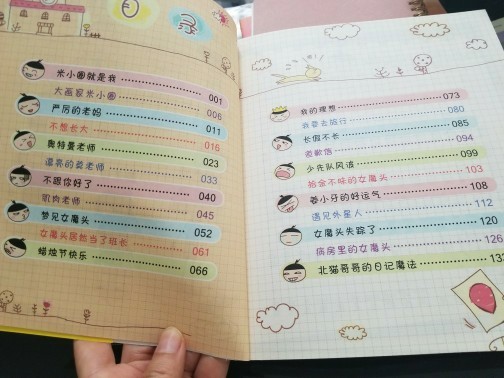 目录
米小圈就是我 001
大画家米小圈 006
严厉的老妈 011
不想长大 016
奥特曼老师 023
漂亮的莫老师 033
不跟你好了 040
肌肉老师 045
梦见女魔头 052
女魔头居然当了班长 061
蜡烛节快乐 066
我的理想 073
我要去旅行 080
长假不长 085
道歉信 094
少先队风波 099
拾金不昧的女魔头 103
姜小牙的好运气 108
遇见外星人 112
女魔头失踪了 120
病房里的女魔头 126
北猫哥哥的日记魔法 132